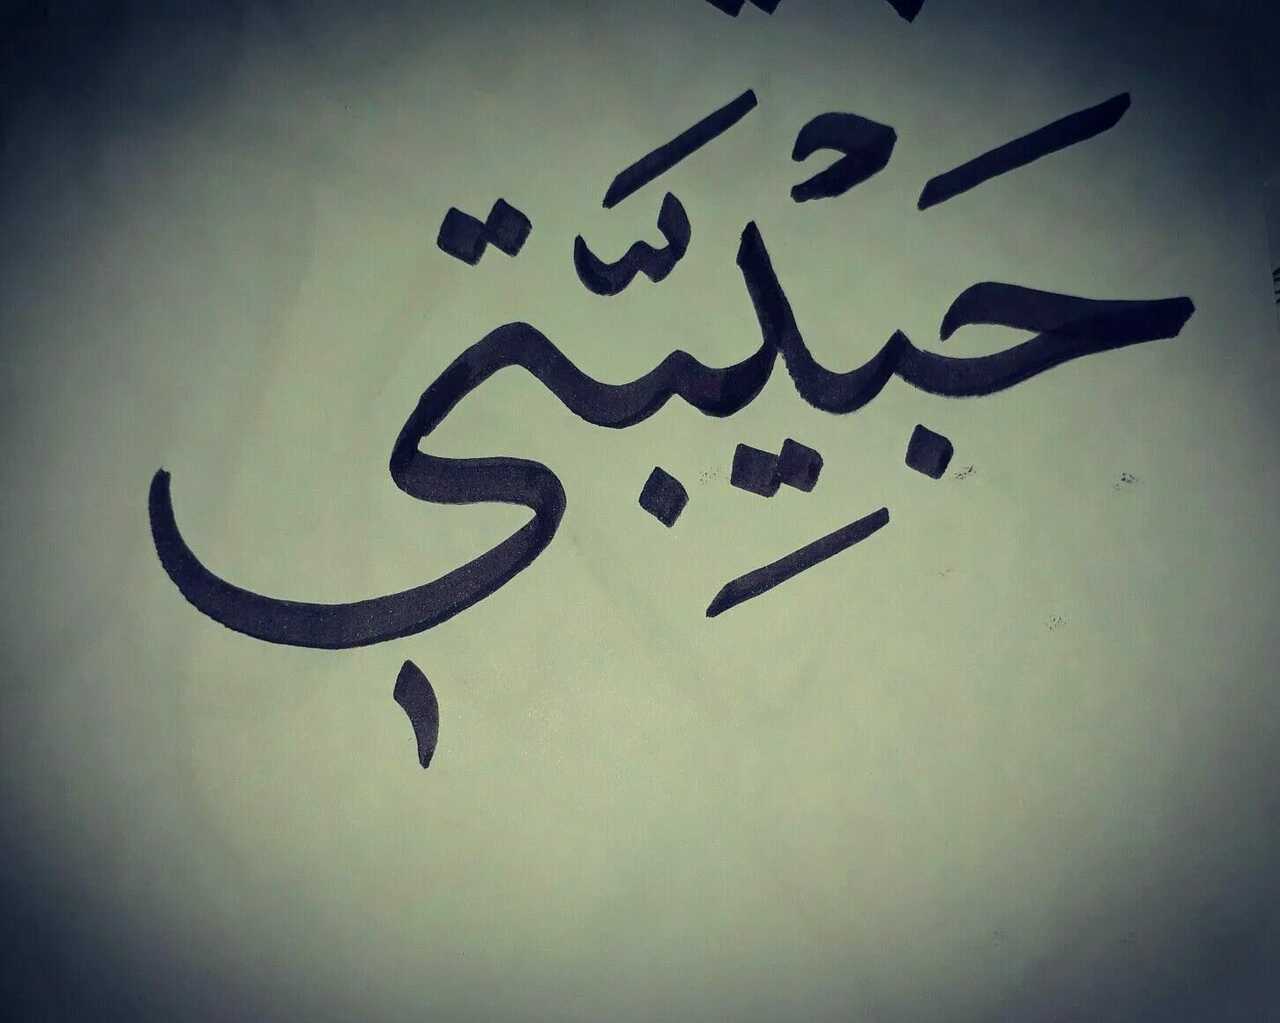 حَبْيِبَّتي